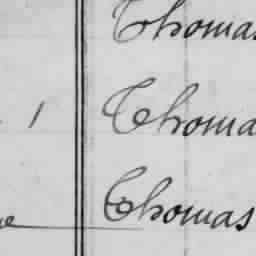 Thomas
1 Thoma
Thomas